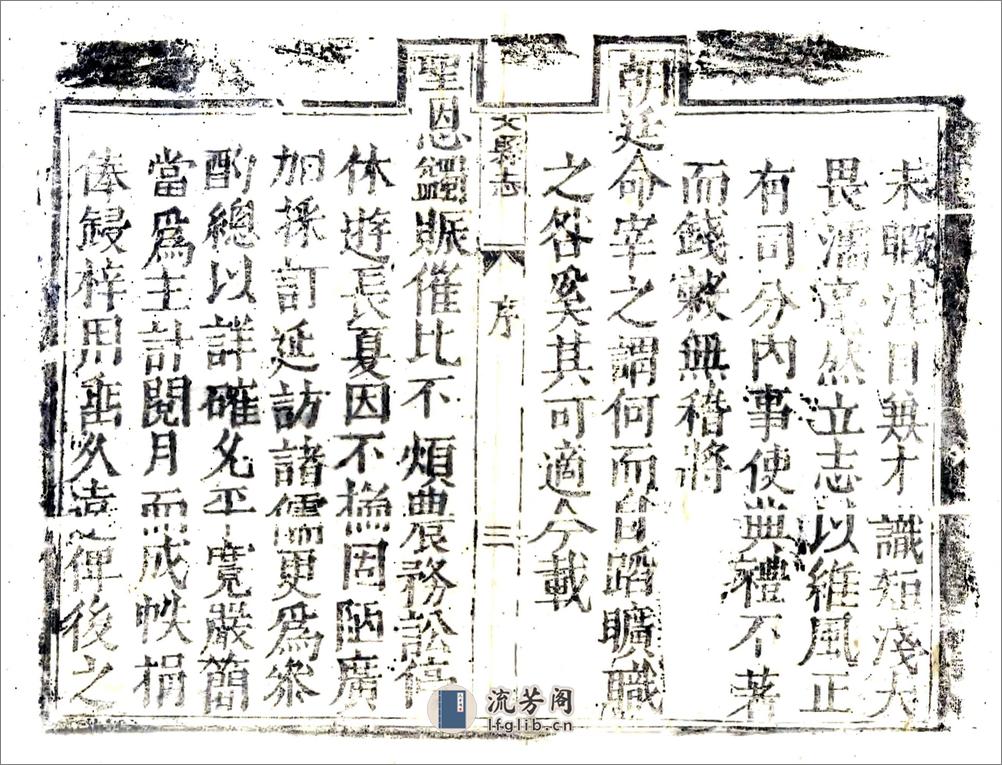 未暇注目無才識短淺大
畏濡滯然立志以維風正
有司分内事使典禮不著
而錢穀無稽將
朝廷命宰之謂何而自蹈曠職
之咎奚其可適今載
文縣志 序 三
聖恩蠲賑催比不煩農務訟停
休遊長夏因不揣固陋廣
加採訂延訪諸儒更爲參
酌總以詳確允平寬嚴簡
當爲主計閱月而成帙捐
俸鋟梓用垂久遠俾後之
流芳阁
lfglib.cn